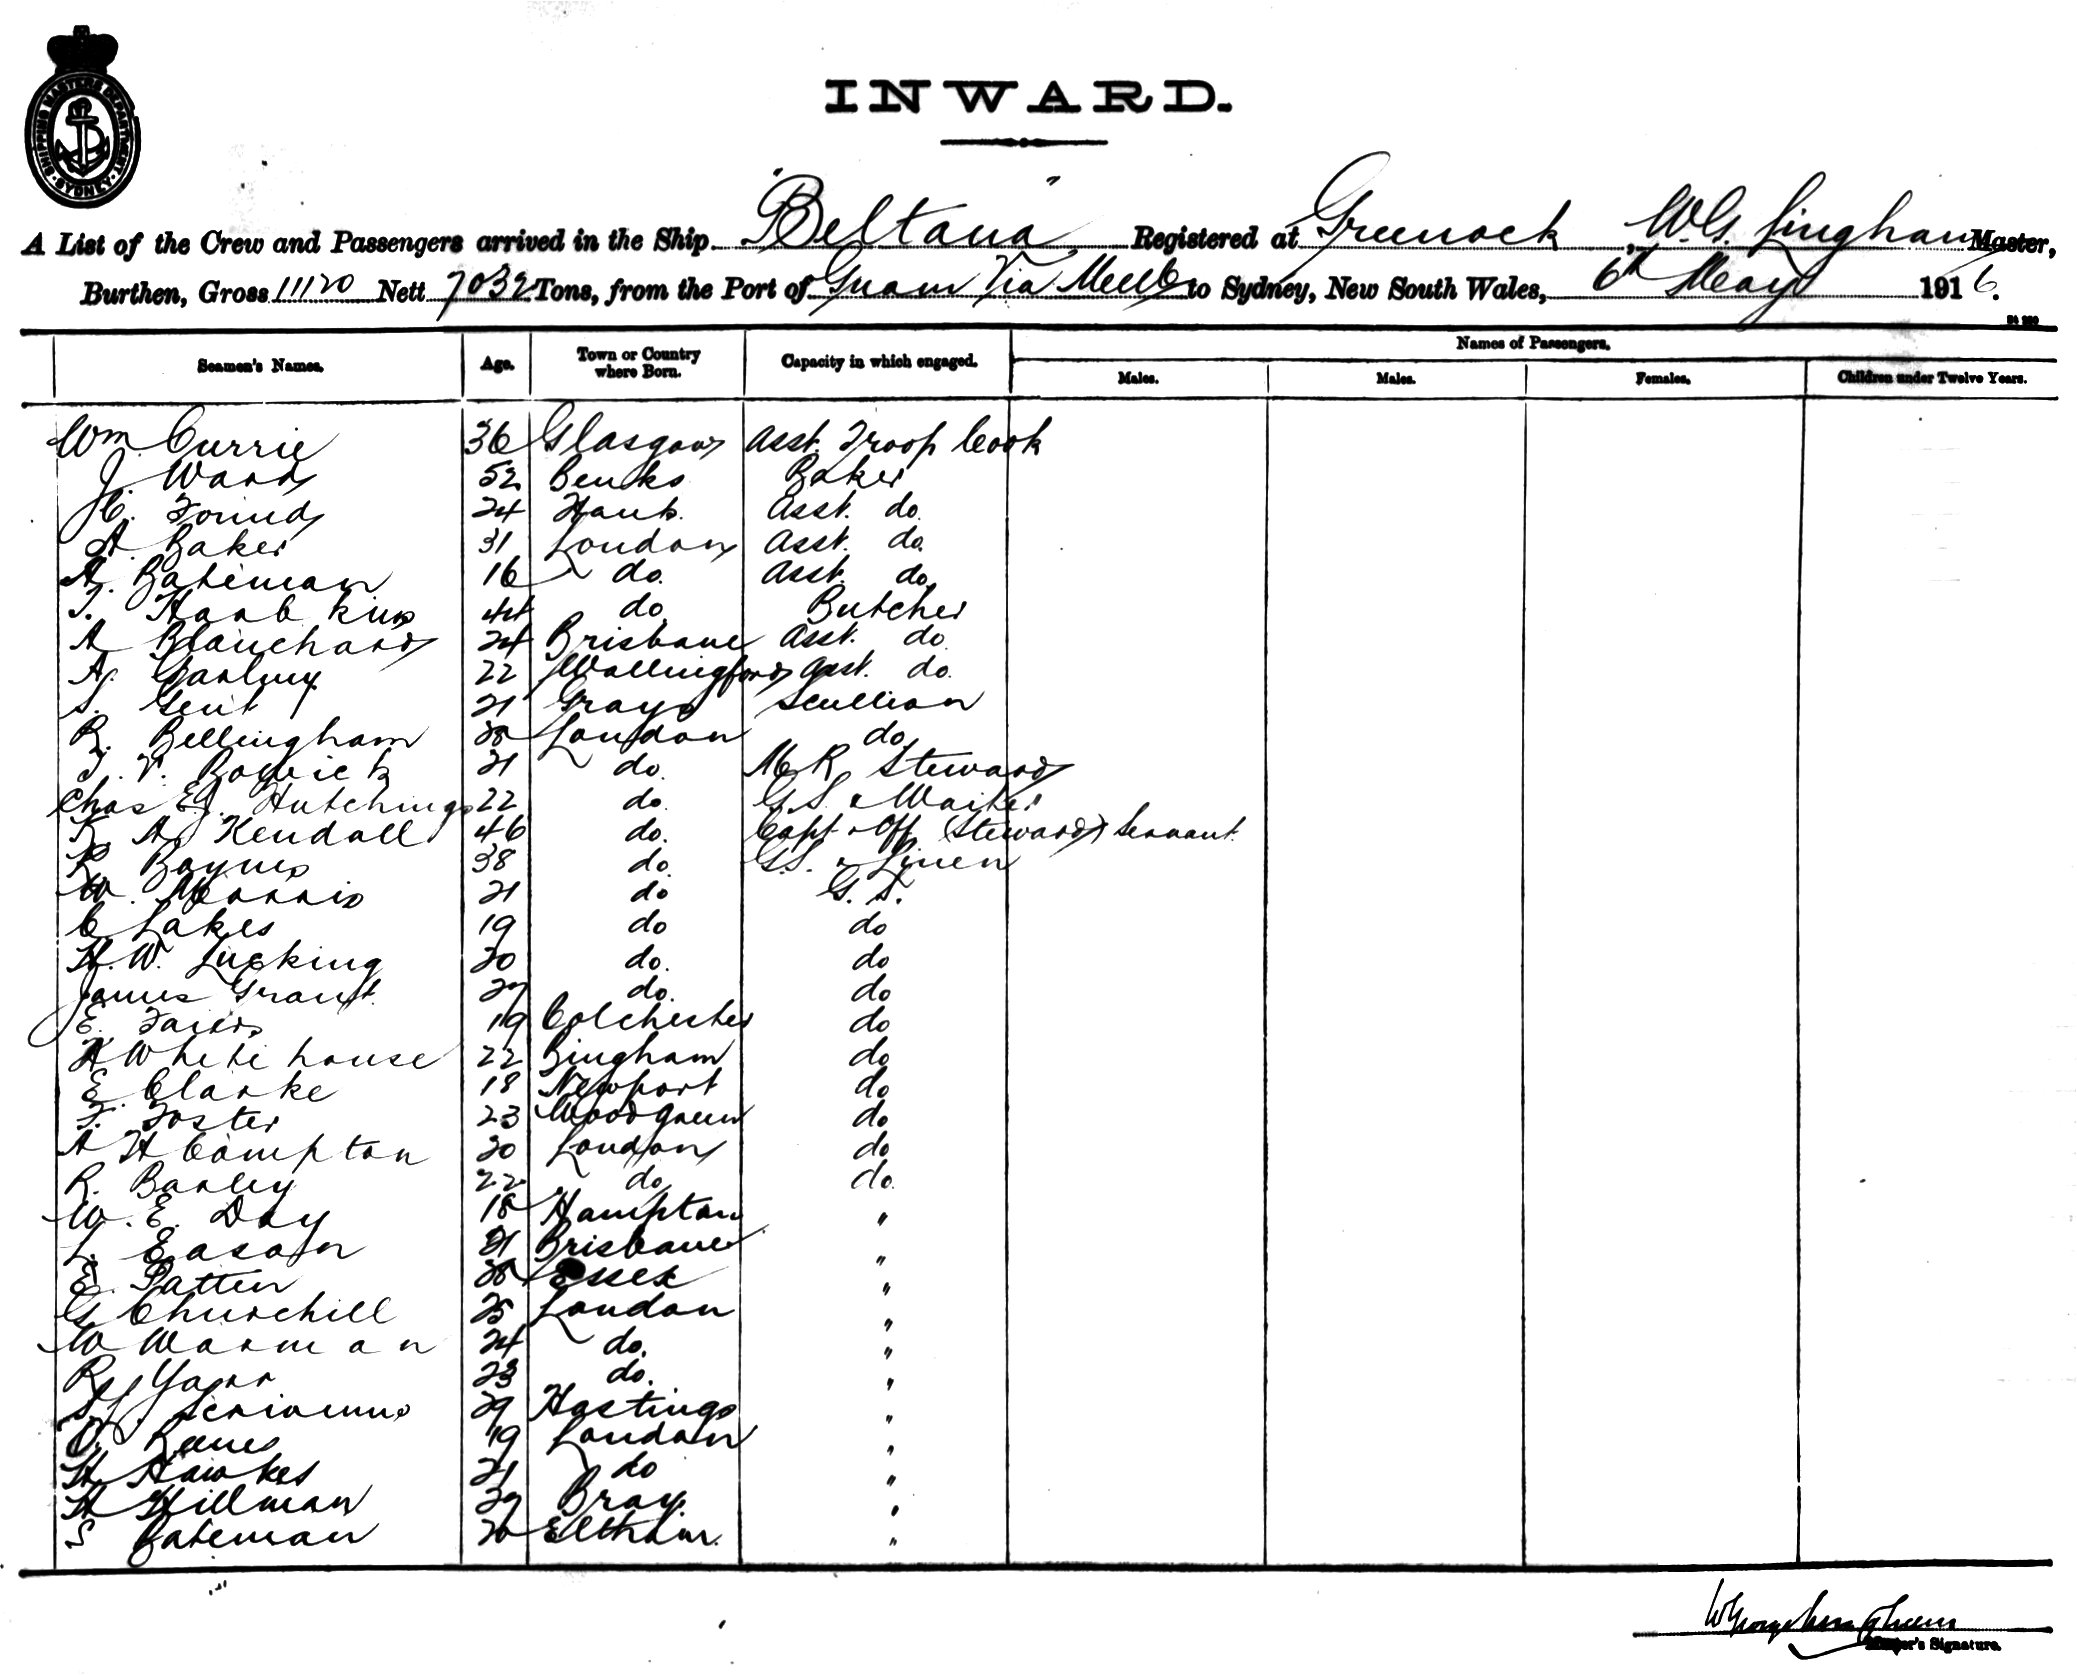 SHIPPING MASTERS DEPARTMENT SYDNEY
INWARD.
A List of the Crew and Passengers arrived in the Ship "Beltana" Registered at Greenock, W.G. Lingham Master,
Burthen, Gross 11120 Nett 7032 Tons, from the Port of via Melb to Sydney, New South Wales, 6th May 1916.
Seamen's Names. Age. Town or Country where Born. Capacity in which engaged. Names of Passengers.
Males. Males. Females. Children under Twelve Years.
Wm. Currie 36 Glasgow Asst. Troop Cook
J. Ward 52 Baker
24 Hants. Asst. do.
A. Baker 31 London Asst. do.
A. Bateman 16 do. Asst. do.
T. 44 do. Butcher
A Blanchard 24 Brisbane Asst. do.
A. 22 Wallingford Asst. do.
S. Gent 21 Grays Scullion
R. Bellingham London do.
21 do. M R Steward
Chas E.J. Hutchings 22 do. G.S. & Waiter
A Kendall 46 do. Capt & Off (Steward) Servant.
R Baynes 38 do. G.S. & Linen
W. Morris 21 do G.S.
C Lakes 19 do do
H. W. Lucking 20 do. do
James Grant do. do
E. 19 Colchester do
H Whitehouse 22 Bingham do
E. Clarke 18 Newport do
F. Foster 23 Woodgreen do
A H Compton 20 London do
R. Barley 22 do do.
W. E. Day 18 Hampton "
L. Eason 21 Brisbane "
E. Patten Essex "
G Churchill 25 London "
W Warman 24 do. "
R Yarr 23 do. "
29 Hastings "
19 London "
H. Hawkes 21 do "
H Hillman Bray "
S Bateman Eltham. "
Master's Signature.